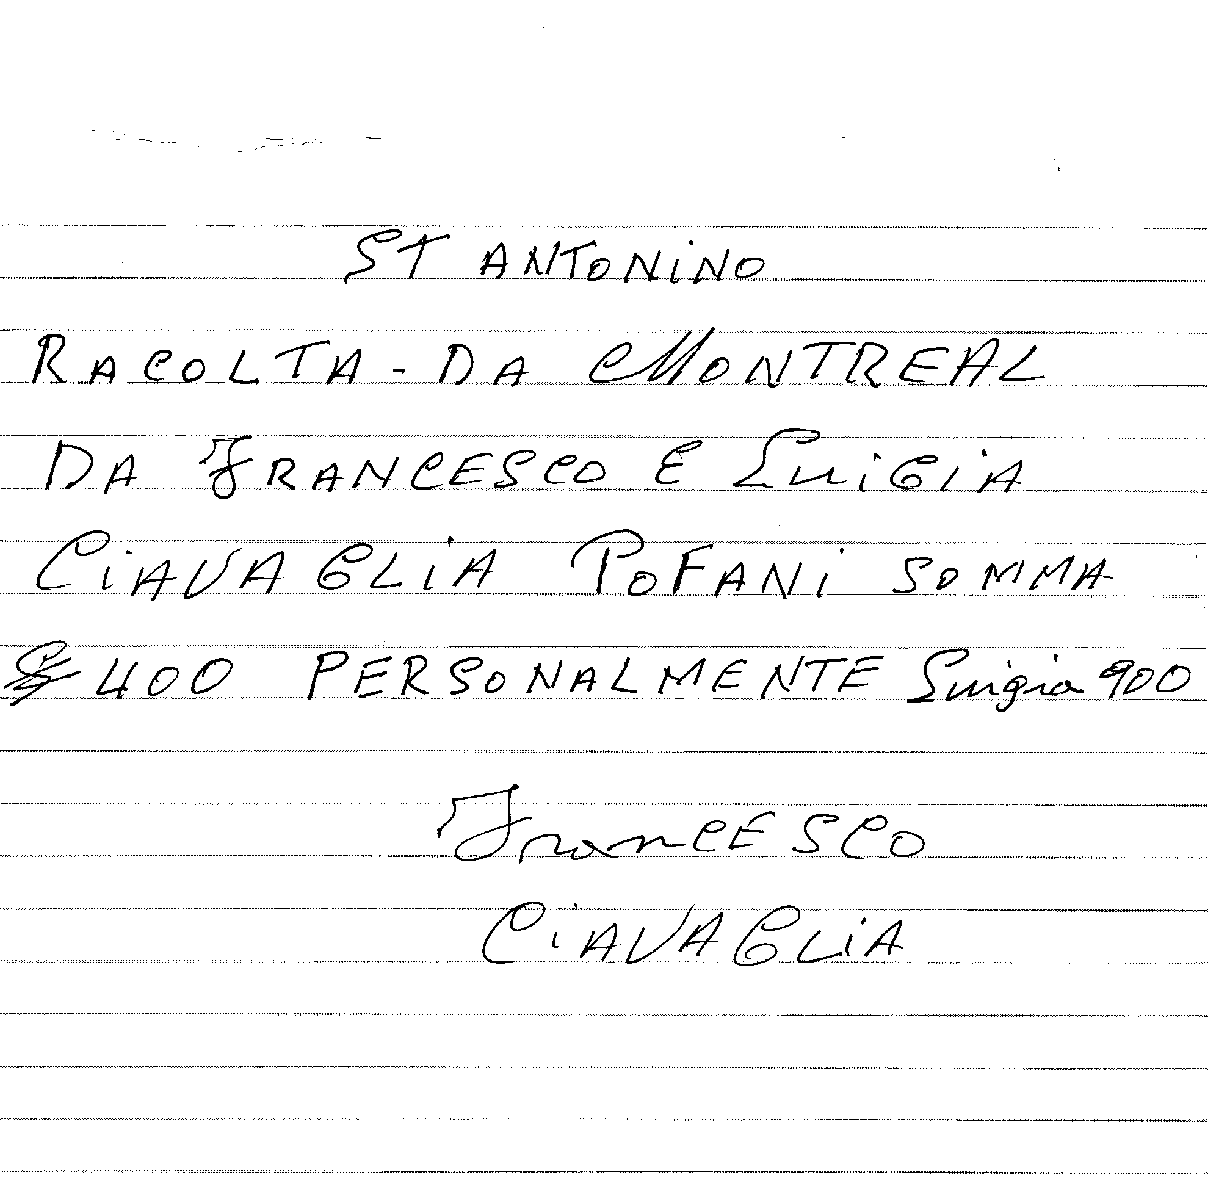 ST ANTONINO
RACOLTA - DA MONTREAL
DA FRANCESCO E LUIGIA
CIAVAGLIA POFANI SOMMA
$ 400 PERSONALMENTE Luigia 900
FRANCESCO
CIAVAGLIA